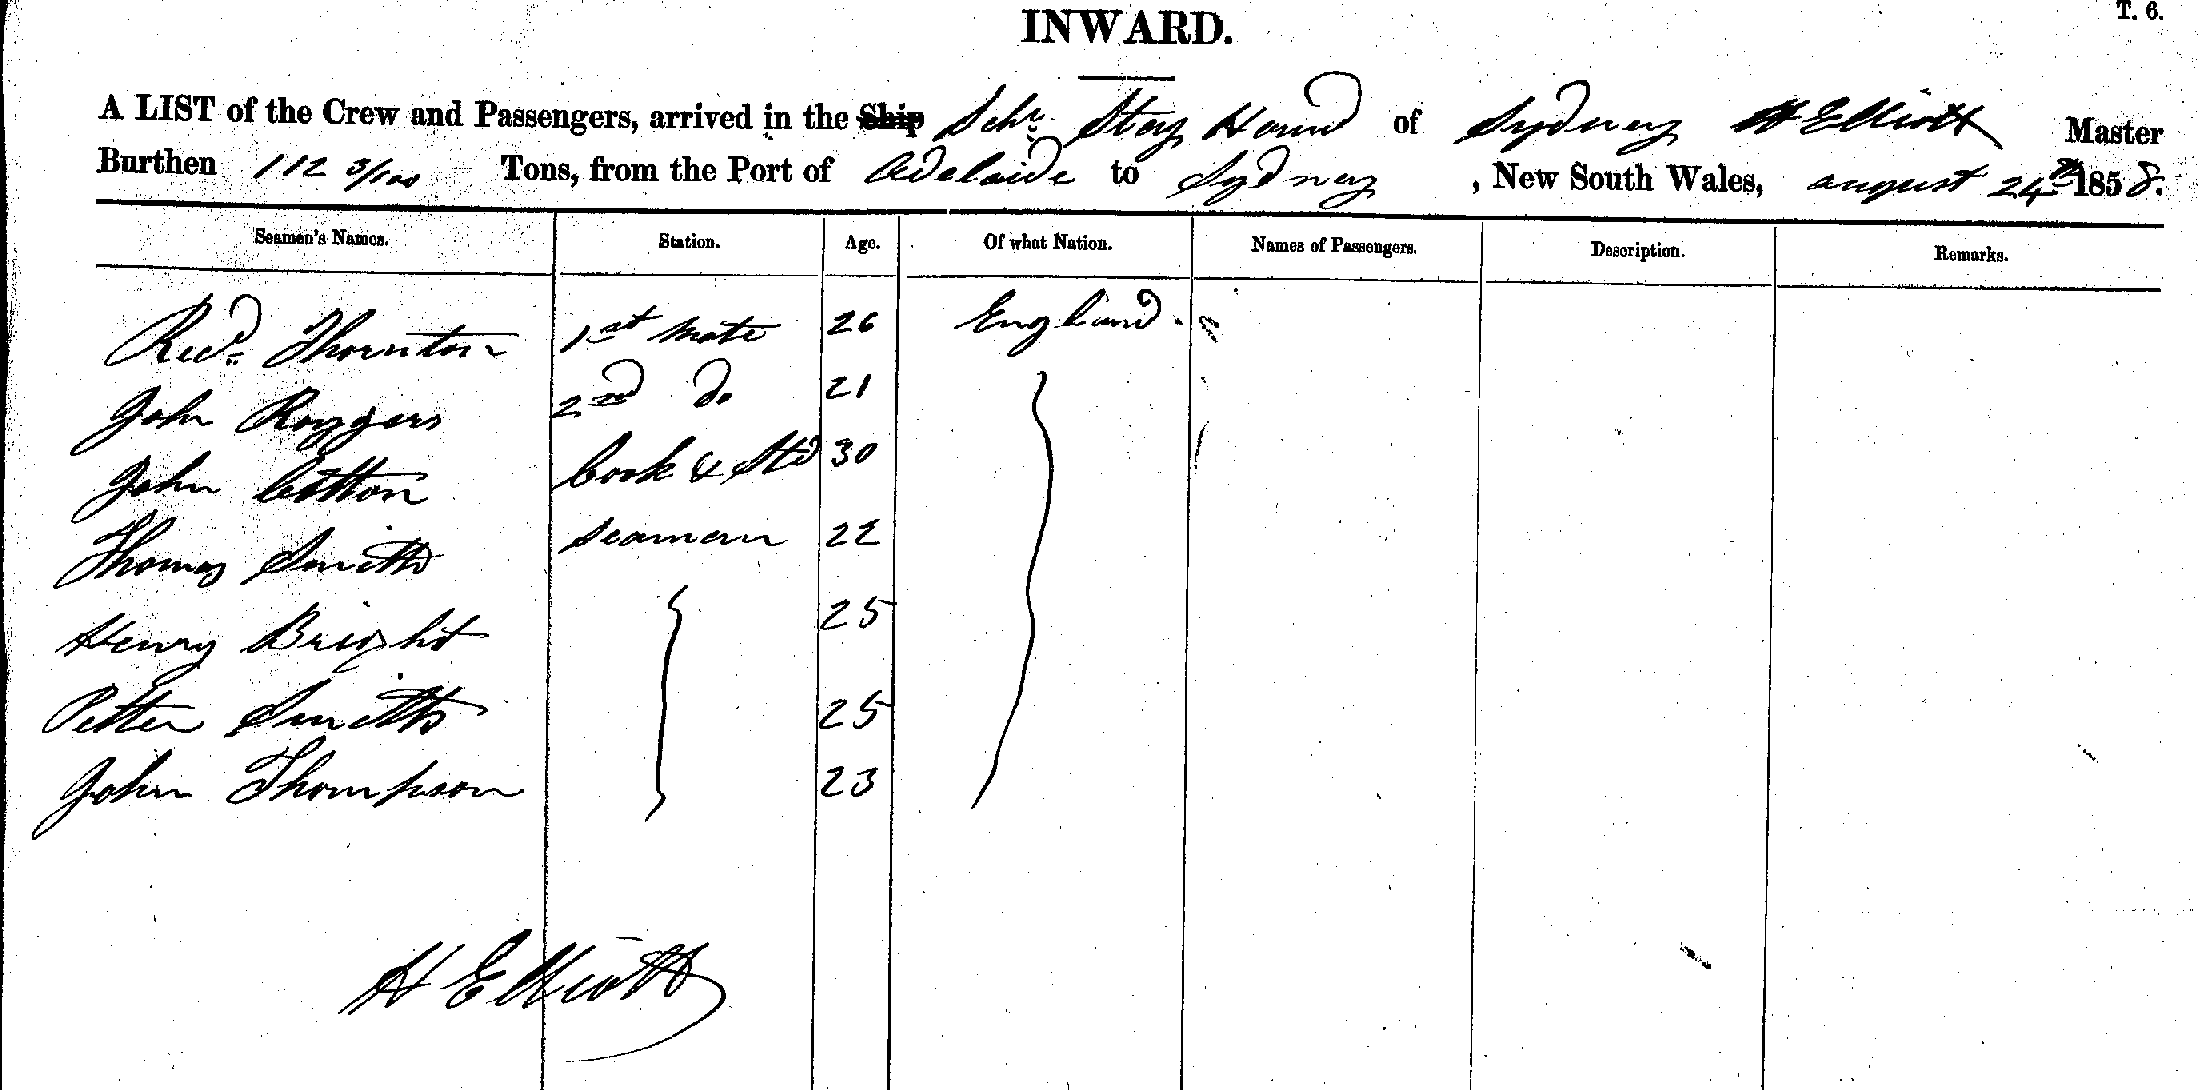 T. 6.
INWARD.
A LIST of the Crew and Passengers, arrived in the Ship Schr. Stag Hound of Sydney H Elliott Master
Burthen 112 3/100 Tons, from the Port of Adelaide to Sydney, New South Wales, august 24th 1858.
Seamen's Names. Station. Age. Of what Nation. Names of Passengers. Description. Remarks.
Ricd. Thornton 1st Mate 26 England.
John Roggers 2nd do 21
John Cotton Cook & Std 30
Thomas Smith Seaman 22
Henry Bright 25
Petter Smith 25
John Thompson 23
H Elliott